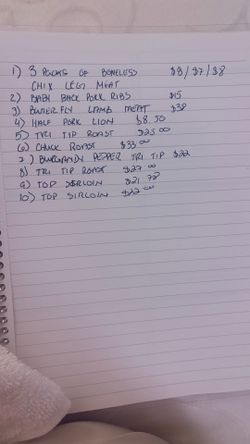 1) 3 PACKS OF BONELESS $9/$7/$8
CHIX LEG MEAT
2) BABY BACK PORK RIBS $15
3) BUTTERFLY LAMB MEAT $38
4) HALF PORK LION $8.50
5) TRI TIP ROAST $25.00
6) CHUCK ROAST $33.00
7) BURGANDY PEPPER TRI TIP $22
8) TRI TIP ROAST $27.00
9) TOP SIRLOIN $21.78
10) TOP SIRLOIN $22.00